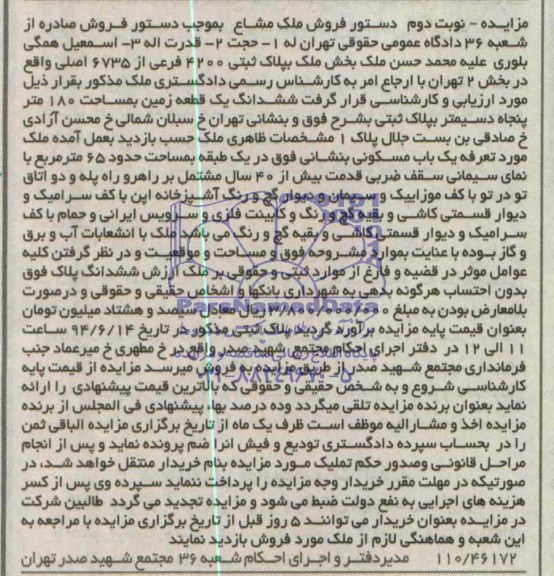 مزایـده - نوبت دوم   دسـتور فروش ملک مشاع   بموجب دستور فـروش صادره از
شـعبه ۳۶ دادگاه عمومی حقوقی تهران له ۱- حجت ۲- قدرت اله ۳- اسـمعیل همگی
بلوری  علیه محمد حسن ملک بخش ملک بپلاک ثبتی ۴۲۰۰ فرعی از ۶۷۳۵ اصلی واقع
در بخش ۲ تهران با ارجاع امر به کارشناس رسمی دادگستری ملک مذکور بقرار ذیل
مورد ارزیابی و کارشناسی قرار گرفت ششدانگ یک قطعه زمین بمساحت ۱۸۰ متر
پنجاه دسیمتر بپلاک ثبتی بشرح فوق و بنشانی تهران خ سبلان شمالی خ محسن آزادی
خ صادقی بن بست جلال پلاک ۱ مشخصات ظاهری ملک حسب بازدید بعمل آمده ملک
مورد تعرفه یک باب مسکونی بنشـانی فوق در یک طبقه بمساحت حدود ۶۵ مترمربع با
نمای سیمانی سـقف ضربی قدمت بیش از ۴۰ سال مشتمل بر راهرو راه پله و دو اتاق
تو در تو با کف موزاییک و سـیمان و دیوار گچ و رنگ آشـپزخانه اپن با کف سـرامیک و
دیوار قسـمتی کاشـی و بقیه گچ و رنگ و کابینت فلزی و سـرویس ایرانی و حمام با کف
سـرامیک و دیوار قسمتی کاشـی و بقیه گچ و رنگ می باشد ملک با انشعابات آب و برق
و گاز بـوده با عنایت بموارد مشـروحه فوق و مسـاحت و موقعیـت و در نظر گرفتن کلیه
عوامل موثر در قضیه و فارغ از موارد ثبتی و حقوقی بر ملک ارزش ششدانگ پلاک فوق
بدون احتساب هرگونه بدهی به شهرداری بانکها و اشخاص حقیقی و حقوقی و درصورت
بلامعارض بودن به مبلغ ۳/۸۰۰/۰۰۰/۰۰۰ ریال معادل سیصد و هشتاد میلیون تومان
بعنوان قیمت پایه مزایده برآورد گردید پلاک ثبتی مذکور در تاریخ ۹۴/۶/۱۴ سـاعت
۱۱ الی ۱۲ در  دفتر اجرای احکام مجتمع شـهید صدر واقع در خ مطهری خ میرعماد جنب
فرمانداری مجتمع شـهید صدر از طریق مزایده به فروش میرسـد مزایده از قیمت پایه
کارشناسـی شـروع و به شـخص حقیقی و حقوقی که بالاترین قیمت پیشنهادی را ارائه
نماید بعنوان برنده مزایده تلقی میگردد وده درصد بهاء پیشنهادی فی المجلس از برنده
مزایده اخذ و مشـارالیه موظف اسـت ظرف یک ماه از تاریخ برگزاری مزایده الباقی ثمن
را در  بحساب سپرده دادگستری تودیع و فیش انرا ضم پرونده نماید و پس از انجام
مراحـل قانونـی وصدور حکم تملیک مـورد مزایده بنام خریدار منتقل خواهد شـد، در
صورتیکه در مهلت مقرر خریدار وجه مزایده را پرداخت ننماید سـپرده وی پس از کسر
هزینه های اجرایی به نفع دولت ضبط می شود و مزایده تجدید می گردد  طالبین شرکت
در مزایـده بعنوان خریدار می تواننـد ۵ روز قبل از تاریخ برگزاری مزایده با مراجعه به
این شعبه و هماهنگی لازم از ملک مورد فروش بازدید نمایند
۱۱۰/۴۶۱۷۲   مدیردفتـر و اجرای احکام شـعبه ۳۶ مجتمع شـهید صدر تهران
ParsNamadData
پایگاه اطلاع رسانی مناقصه و مزایده
۰۲۱-۸۸۳۴۹۶۷۰-۵